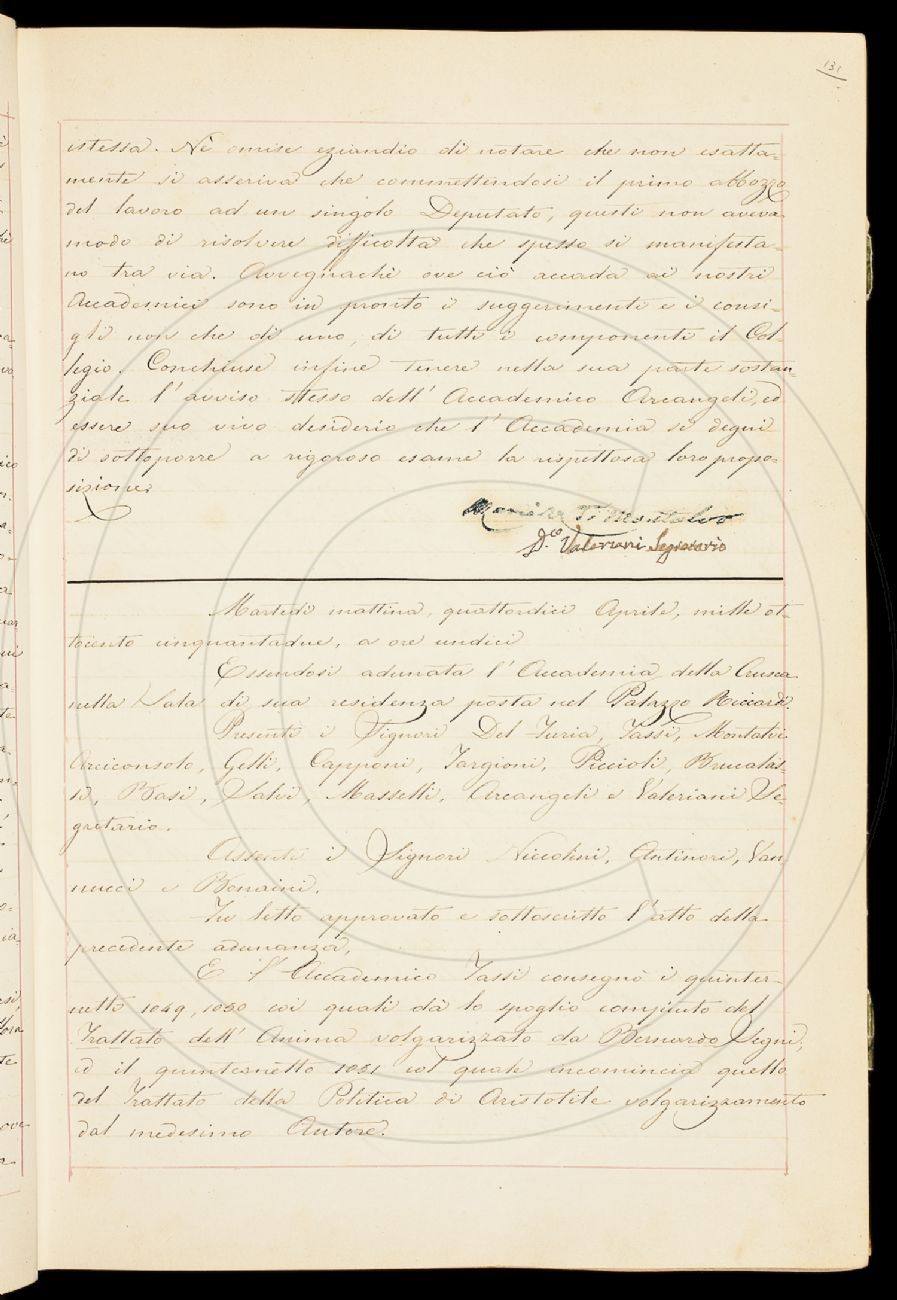 131
istessa. Nè omise eziandio di notare che non esatta=
mente si asseriva che commettendosi il primo abbozzo
del lavoro ad un singolo Deputato, questi non aveva
modo di risolvere difficoltà che spesso si manifesta=
no tra via. Avvegnachè ove ciò accada ai nostri
Accademici sono in pronto i suggerimenti e i consi=
gli non che di uno, di tutti i componenti il Col=
legio. Conchiuse infine tenere nella sua parte sostan=
ziale l'avviso stesso dell'Accademico Arcangeli, ed
essere suo vivo desiderio che l'Accademia si degni
di sottoporre a rigoroso esame la rispettosa loro propo=
sizione.
D.co Valeriani Segretario
Martedì mattina, quattordici Aprile, mille ot=
tocento cinquantadue, a ore undici
Essendosi adunata l'Accademia della Crusca
nella Sala di sua residenza posta nel Palazzo Riccardi.
Presenti i Signori Del Furia, Tassi, Montalvi
Arciconsolo, Gelli, Capponi, Targioni, Piccioli, Brucalas=
si, Basi, Salvi, Masselli, Arcangeli e Valeriani Se=
gretario.
Assenti i Signori Niccolini, Antinori, Van
nucci e Bonaini.
Fu letto approvato e sottoscritto l'atto della
precedente adunanza,
E l'Accademico Tassi consegnò i quinter=
netti 1049, 1050 coi quali dà lo spoglio compiuto del
Trattato dell'Anima volgarizzato da Bernardo Segni,
ed il quinternetto 1051 col quale incomincia quello
del Trattato della Politica di Aristotile volgarizzamento
dal medesimo Autore.